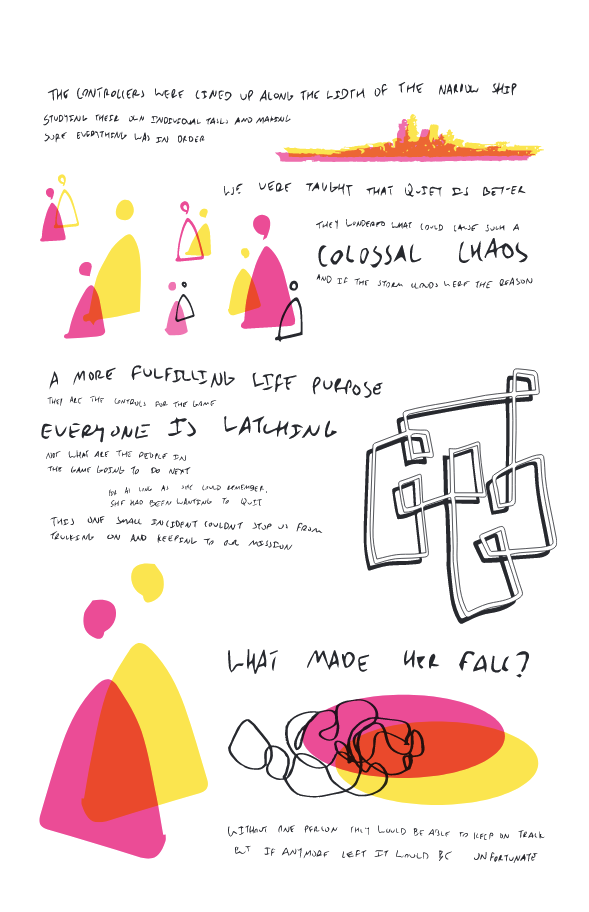 THE CONTROLLERS WERE LINED UP ALONG THE WIDTH OF THE NARROW SHIP
STUDYING THEIR OWN INDIVIDUAL TASKS AND MAKING
SURE EVERYTHING WAS IN ORDER
WE WERE TAUGHT THAT QUIET IS BETTER
THEY WONDERED WHAT COULD CAUSE SUCH A
COLOSSAL CHAOS
AND IF THE STORM CLOUDS WERE THE REASON
A MORE FULFILLING LIFE PURPOSE
THEY ARE THE CONTROLS FOR THE GAME
EVERYONE IS WATCHING
NOT WHAT ARE THE PEOPLE IN
THE GAME GOING TO DO NEXT
FOR AS LONG AS SHE COULD REMEMBER,
SHE HAD BEEN WANTING TO QUIT
THIS ONE SMALL INCIDENT COULDNT STOP US FROM
TRUCKING ON AND KEEPING TO OUR MISSION
WHAT MADE HER FALL?
WITHOUT ONE PERSON THEY WOULD BE ABLE TO KEEP ON TRACK
BUT IF ANYMORE LEFT IT WOULD BE UNFORTUNATE